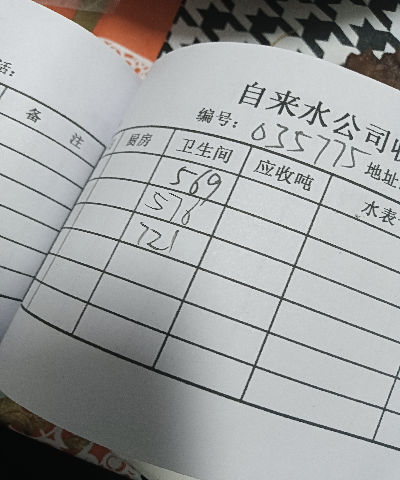 话：
备 注
自来水公司收
编号：035775 地址
厨房 卫生间 应收吨 水表
569
576
721